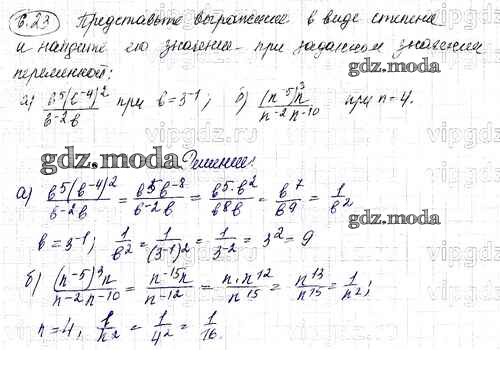 6.23 Представьте выражение в виде степени
и найдите его значение при заданном значении
переменной:
а) b⁵(b⁻⁴)² / b⁻²b при b=3⁻¹; б) (n⁻⁵)³n / n⁻²n⁻¹⁰ при n=4.
gdz.moda Решение:
а) b⁵(b⁻⁴)² / b⁻²b = b⁵b⁻⁸ / b⁻²b = b⁵·b² / b⁸b = b⁷ / b⁹ = 1 / b²
b = 3⁻¹; 1 / b² = 1 / (3⁻¹)² = 1 / 3⁻² = 3² = 9
б) (n⁻⁵)³n / n⁻²n⁻¹⁰ = n⁻¹⁵n / n⁻¹² = n·n¹² / n¹⁵ = n¹³ / n¹⁵ = 1 / n²;
n=4, 1 / n² = 1 / 4² = 1 / 16.
gdz.moda
gdz.moda
gdz.moda
vipgdz